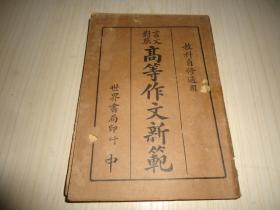 教科自修適用
言文
對照
高等作文新範
世界書局印行
中